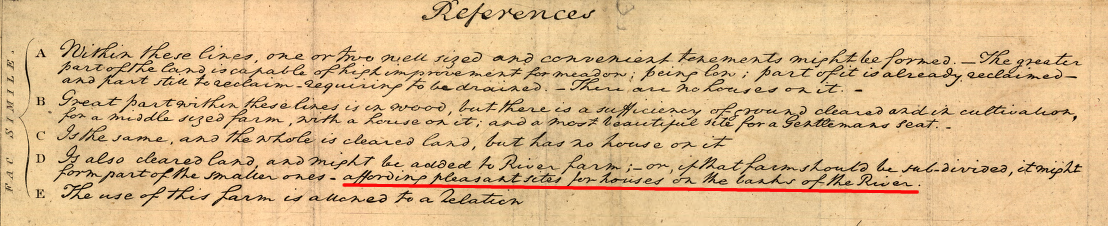 References
FAC SIMILE.
A Within these lines, one or two well sized and convenient tenements might be formed. — The greater
part of the land is capable of high improvement for meadow; being low; part of it is already reclaimed —
and part still to reclaim - requiring to be drained. - There are no houses on it. -
B Great part within these lines is in wood, but there is a sufficiency of ground cleared and in cultivation,
for a middle sized farm, with a house on it; and a most beautiful site for a Gentlemans seat. -
C Is the same, and the whole is cleared land, but has no house on it
D Is also cleared land, and might be added to River farm; - or, if that farm should be sub-divided, it might
form part of the smaller ones - affording pleasant sites for houses on the banks of the River.
E The use of this farm is allowed to a relation